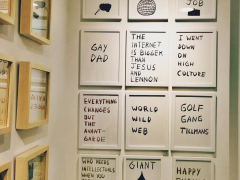 JOB
GAY
DAD
THE
INTERNET
IS BIGGER
THAN
JESUS
AND
LENNON
I WENT
DOWN
ON
HIGH
CULTURE
EVERYTHING
CHANGES
BUT
THE
AVANT-
GARDE
WORLD
WILD
WEB
GOLF
GANG
TILLMANS
WHO NEEDS
INTELLECTUALS
WHEN YOU
GIANT
HAPPY